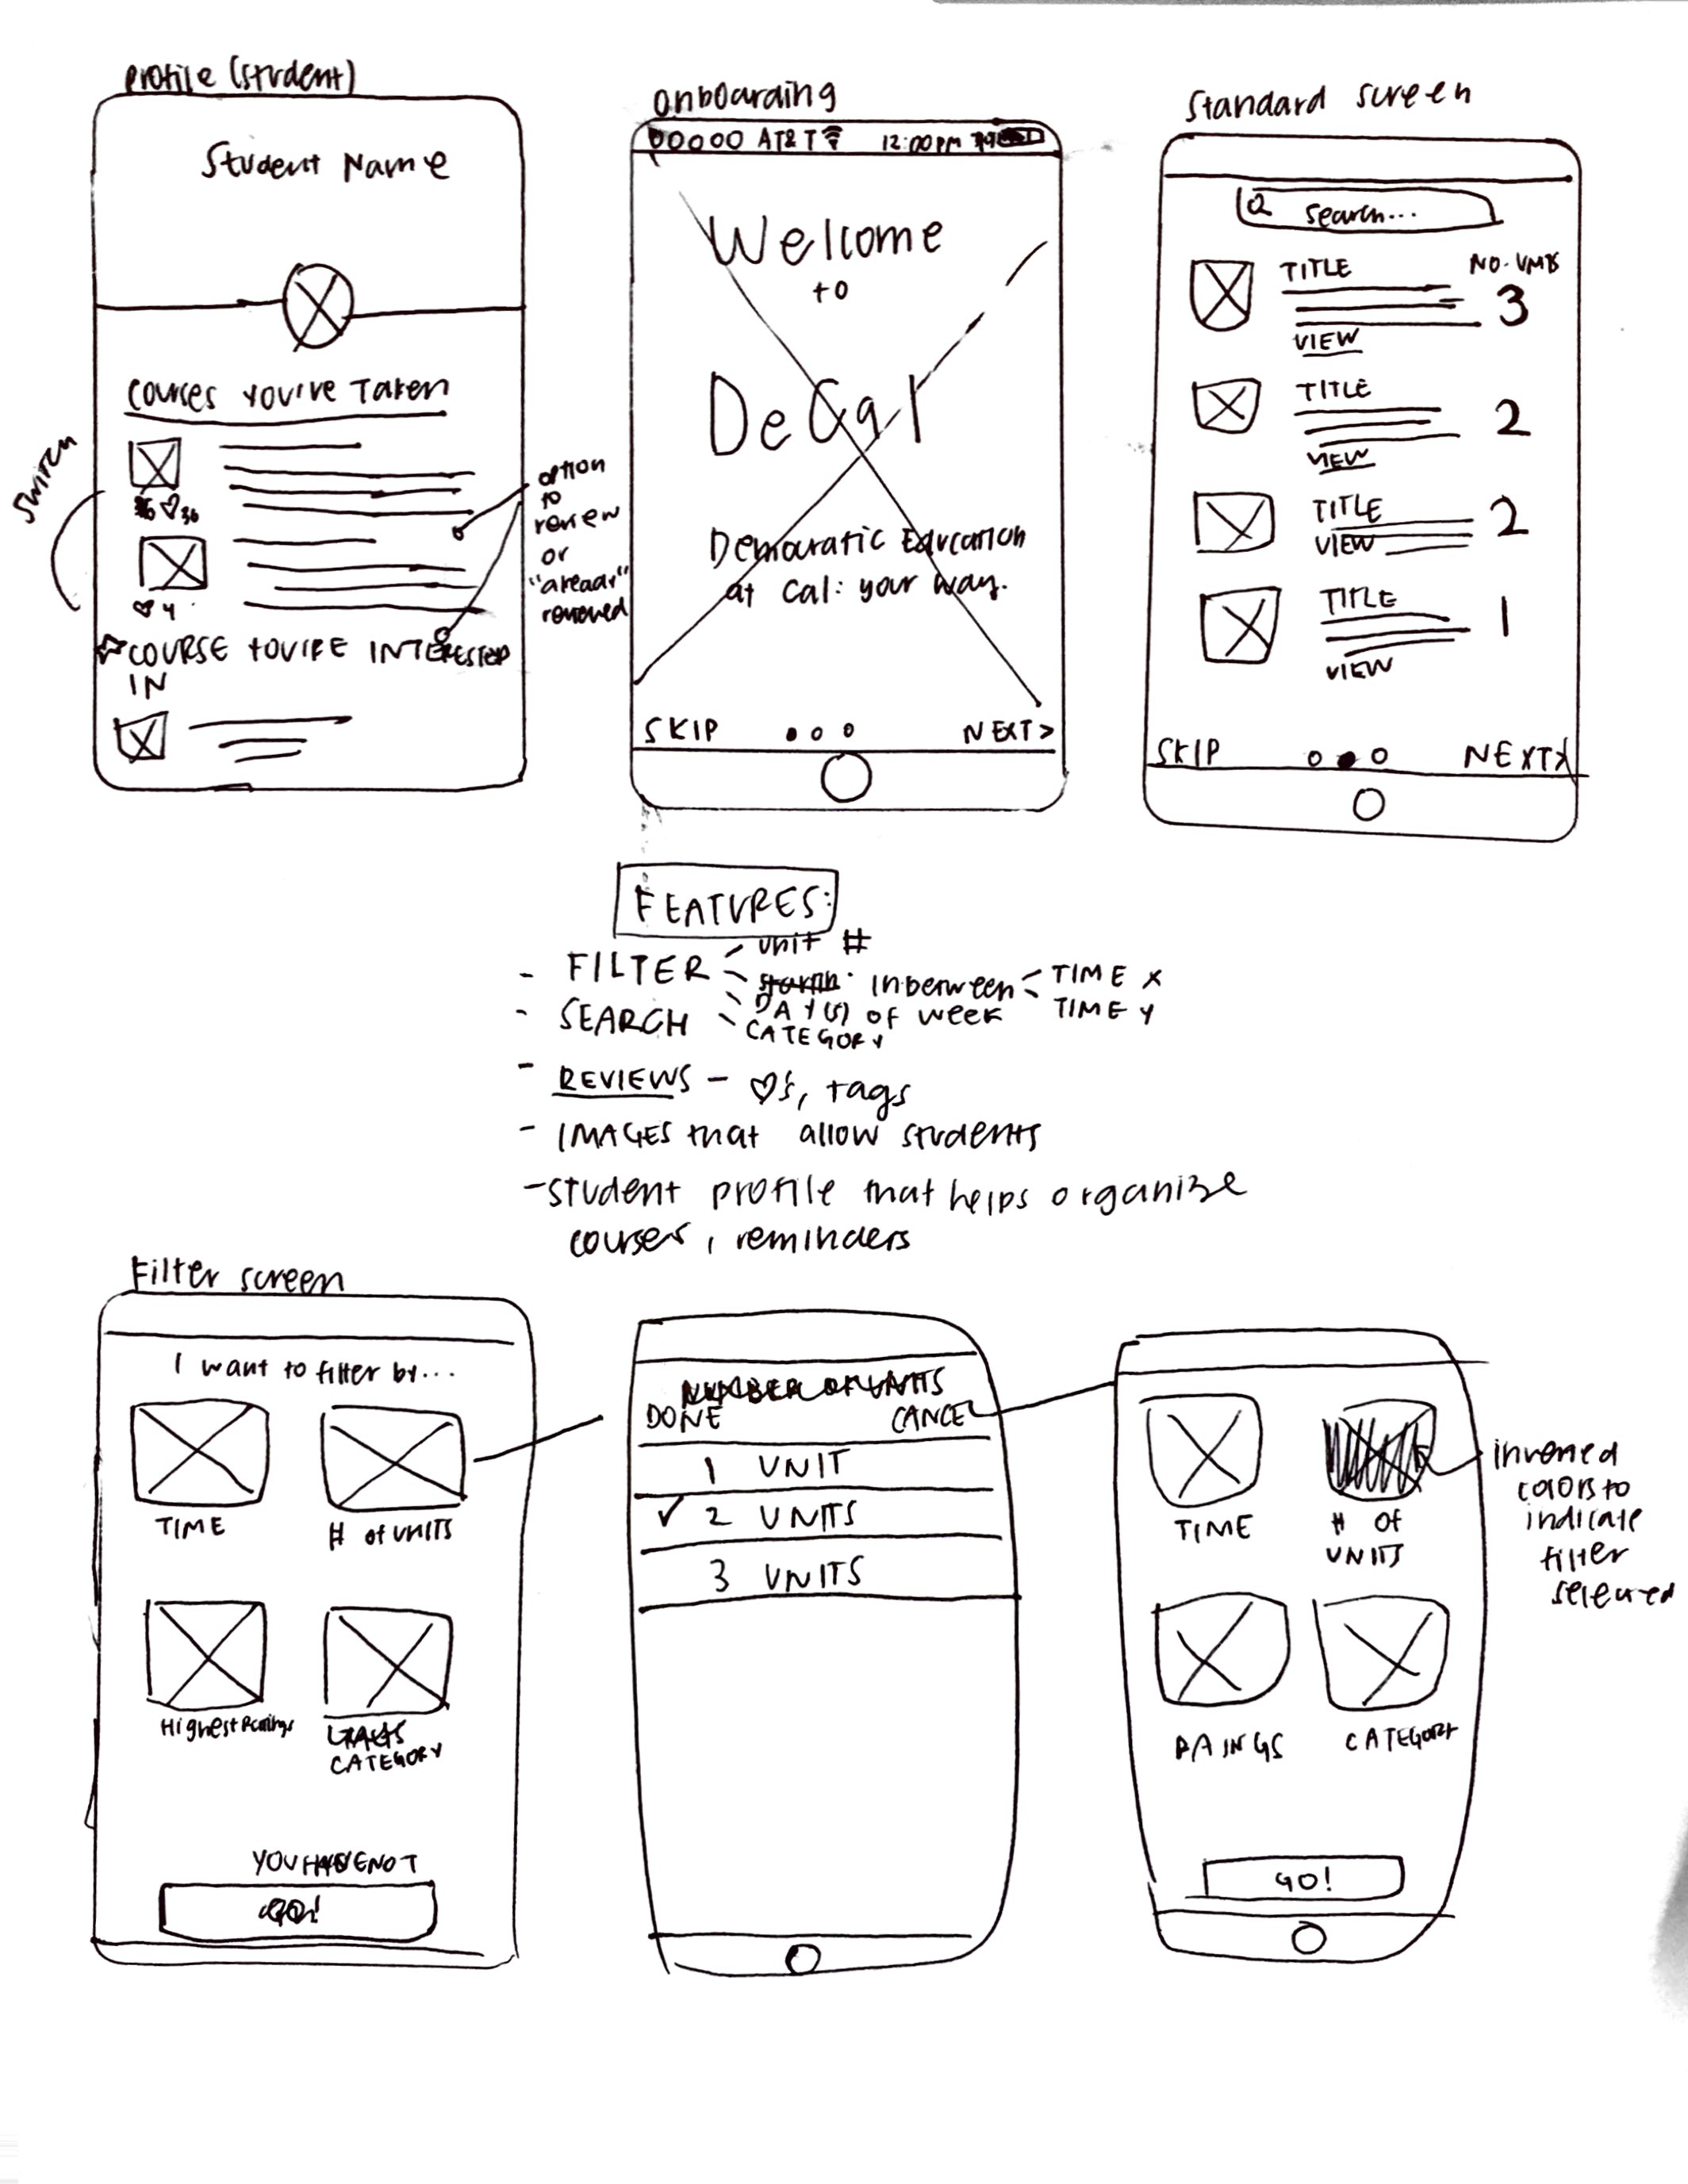 profile (student)
Student Name
Courses You've Taken
switch
♡ 36
♡ 4
option
to
review
or
"already"
reviewed
☆ COURSE YOU'RE INTERESTED
IN
onboarding
00000 AT&T 12:00PM
Welcome
to
DeCal
Democratic Education
at Cal: your way.
SKIP NEXT>
Standard screen
Search...
TITLE NO. UNITS
3
VIEW
TITLE
2
VIEW
TITLE
2
VIEW
TITLE
1
VIEW
SKIP NEXT>
FEATURES:
- FILTER
unit #
inbetween TIME X
TIME Y
DAY(S) OF WEEK
CATEGORY
- SEARCH
- REVIEWS - ♡'s, tags
- IMAGES that allow students
- student profile that helps organize
courses, reminders
Filter screen
I want to filter by...
TIME # of UNITS
Highest Ratings
CATEGORY
YOU HAVE NOT
GO!
NUMBER OF UNITS
DONE CANCEL
1 UNIT
✓ 2 UNITS
3 UNITS
TIME # OF
UNITS
RAINGS CATEGORY
GO!
inverted
colors to
indicate
filter
selected